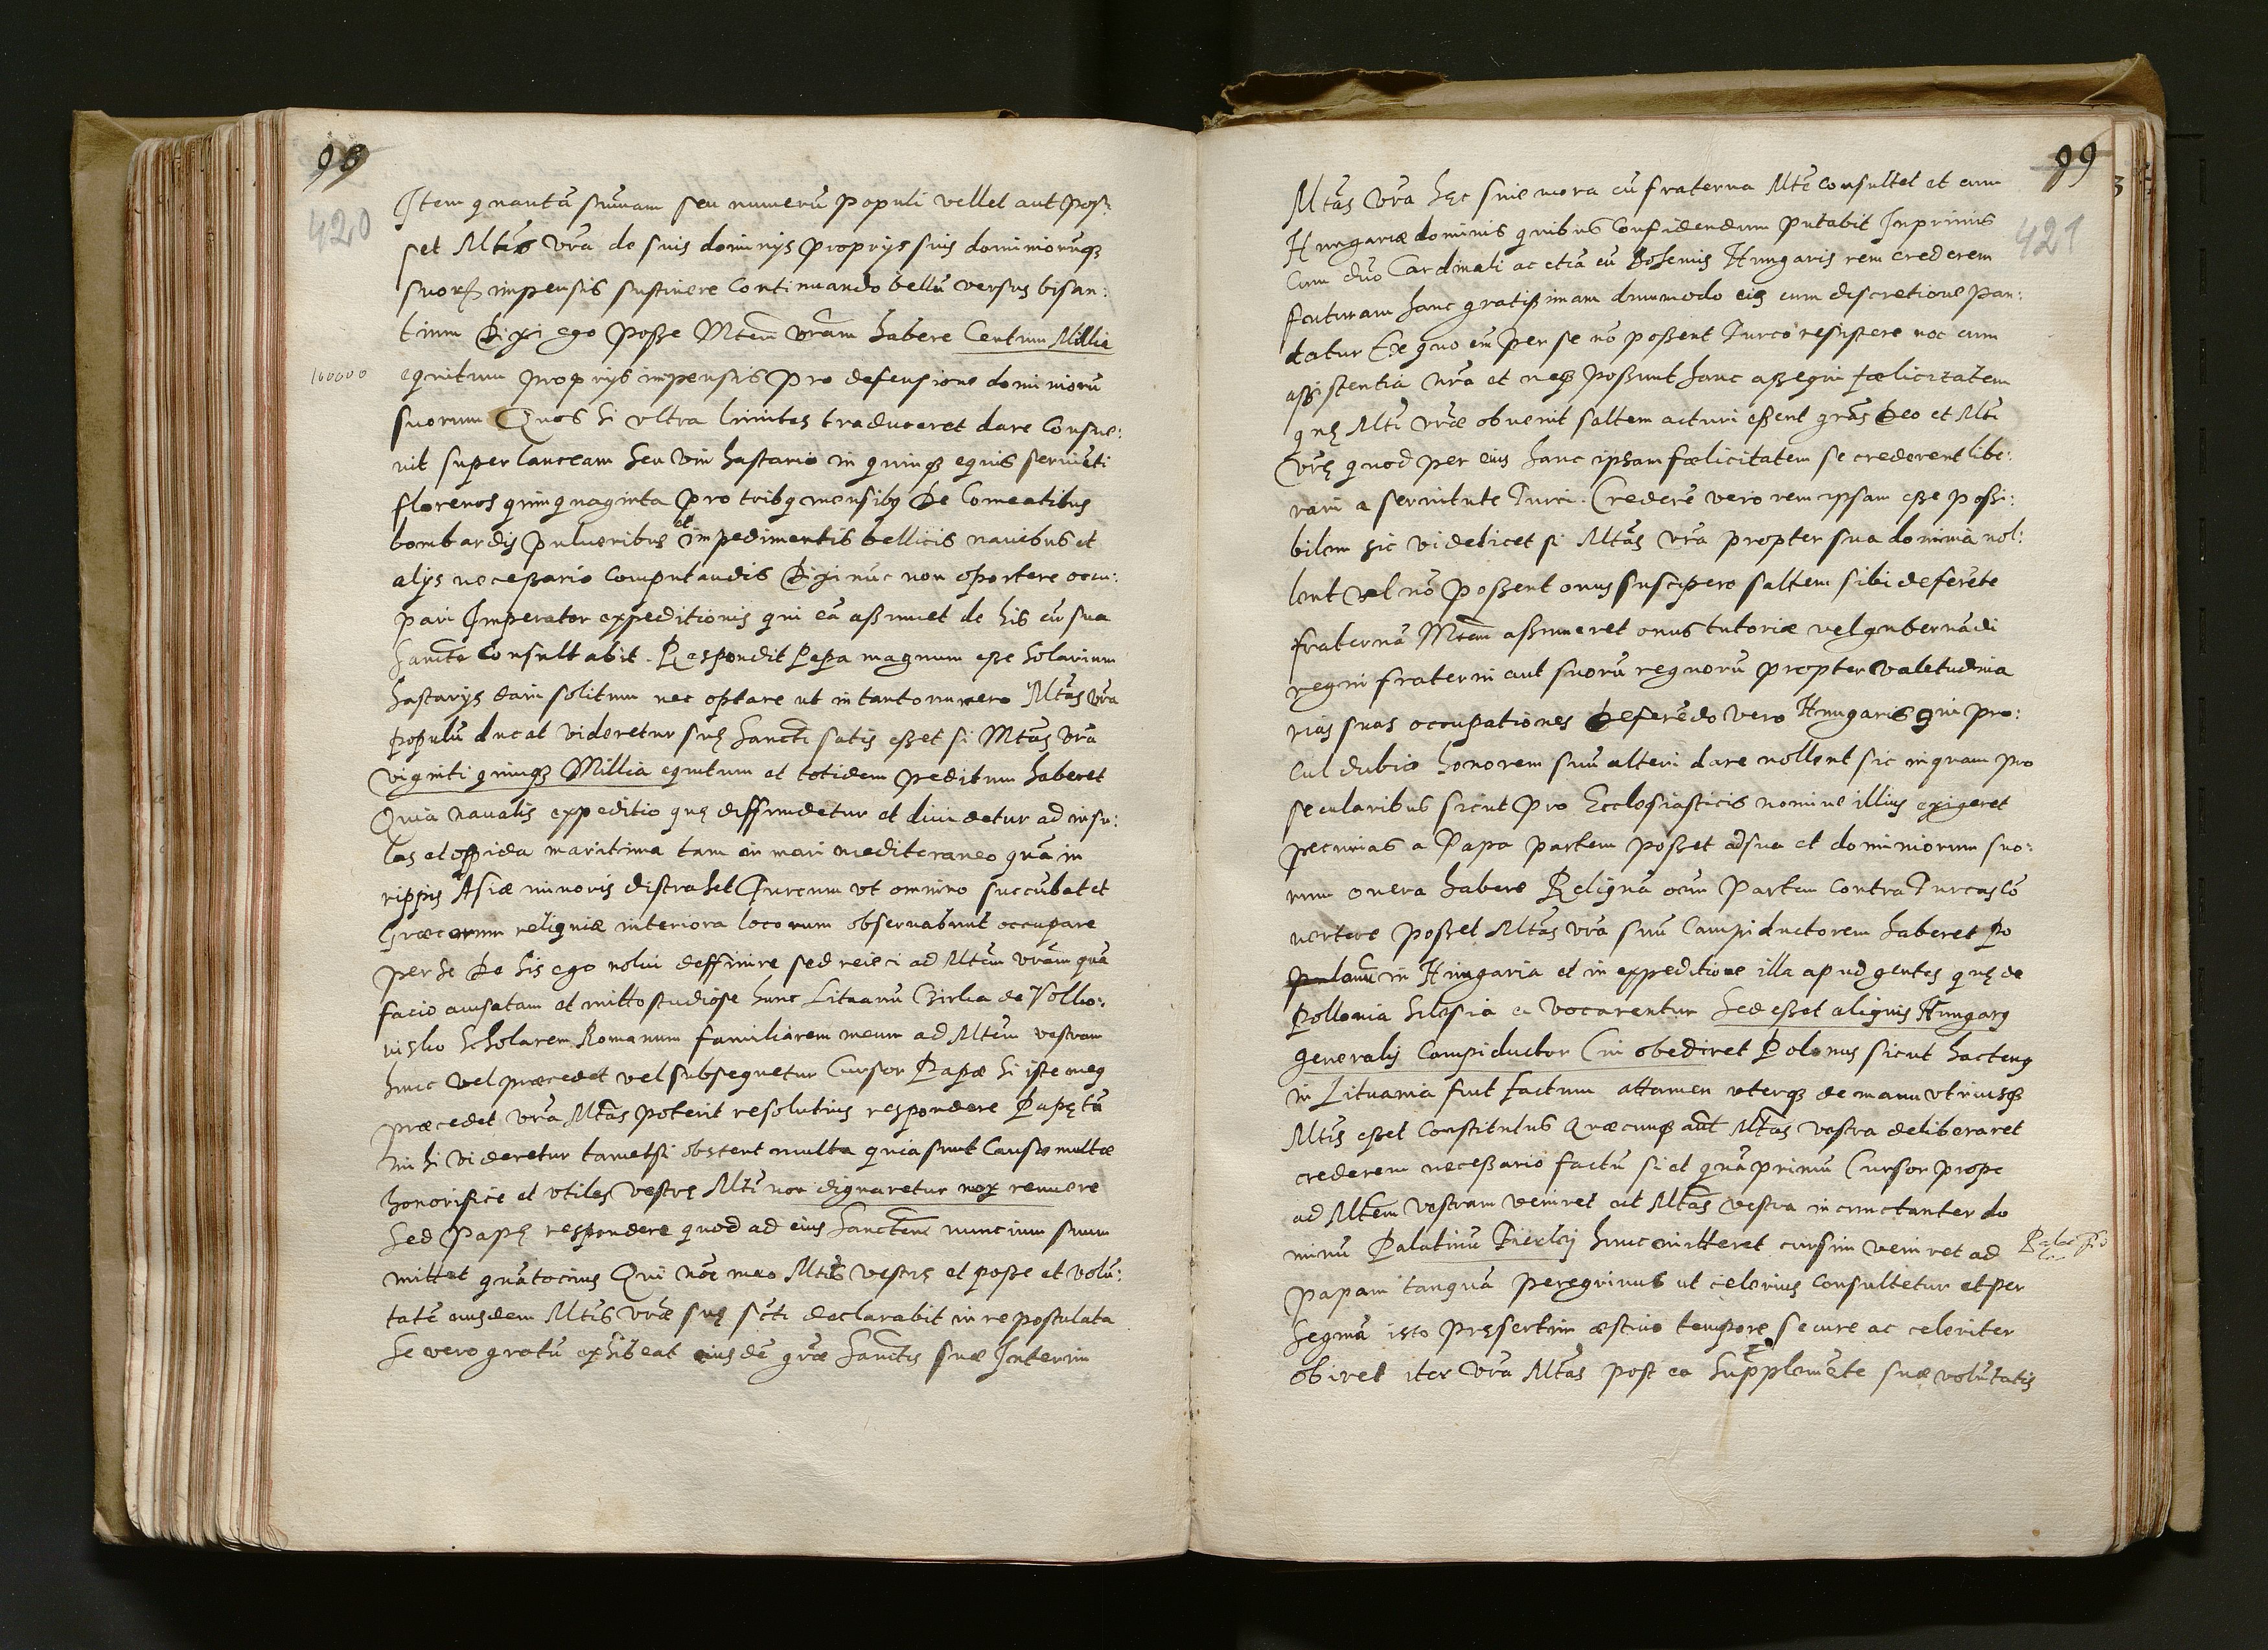 98
420
Item quantã summam seu numerũ populi vellet aut pos:
set Mtas vrã de suis dominijs proprijs suis dominiorumq3
suorũ impensis sustinere continuando bellũ versus bisan:
tium Dixi ego posse Mtem vrãm habere Centum Millia
100000
equitum proprijs impensis pro defensione dominiorũ
suorum Quos si vltra limites traduceret dare consue:
uit super lanceam seu viro hastario in quinq3 equis seruiẽti
florenos quinquaginta pro tribq mensibq De Comeatibus
bombardis pulueribus et impedimentis bellicis nauibus et
alijs necessario computandis Dixi nũc non oportere occu:
pari Imperator expeditionis qui eã assumet de his cũ sua
Sancte consultabit. Respondit Papa magnum esse solarium
hastarijs dari solitum nec optare ut in tanto numero Mtas vrã
populũ ducat videretur suę Sancti satis esset si Mtas vrã
viginti quinq3 Millia equitum et totidem peditum haberet
Quia naualis expeditio quę diffundetur et diuidetur ad insu:
las et oppida maritima tam in mari mediteraneo quã in
rippis Asiæ minoris distrahet Turcum vt omnino succũbat et
Græcorum reliquiæ interiora locorum obseruabunt occupare
per se De his ego nolui deffinire sed reieci ad Mtem vrãm quã
facio auisatam et mitto studiose hunc Lituanũ Cirlia de Vollio:
uisko Scholarem Romanum familiarem meum ad Mtem vestram
hunc vel præcedet vel subsequetur Cursor Papæ Si iste meq
præcedet vrã Mtas poterit resolutius respondere Papę tũ
mihi videretur tametsi obstent multa quia sunt causæ multæ
honorificæ et vtiles vestrę Mti non dignaretur mox renuere
Sed Papę respondere quod ad eius Sanctem nuncium suum
mittet quãtocius Qui nõe meo Mtis vestrę et posse et volũ:
tatẽ eiusdem Mtis vræ suę scti declarabit in re postulata
Se vero gratũ exhibeat eiusdẽ gr̃æ Sanctis suæ Interim
99
421
Mtas vrã hęc sine mora cũ fraterna Mte consultet et cum
Hungariæ dominis quibus confidendum putabit Inprimis
cum dño Cardinali ac etiã cũ Bohemis Hungaris rem crederem
futuram hanc gratissimam dummodo eis cum discretione pan:
datur Ex quo em̃ per se nõ possent Turco resistere nec cum
assistentia nrã et neq3 possunt hanc assequi fælicitatem
quę Mti vræ obuenit saltem acturi essent grãs Deo et Mti
vrę quod per eius hanc ipsam fælicitatem se crederent libe:
rari a seruitute Turci. Crederẽ vero rem ipsam esse possi:
bilem sic videlicet si Mtas vrã propter sua dominia nol:
lent vel nõ possent onus suscipere saltem sibi deferẽte
fraternã Mtem assumeret onus tutoriæ vel gubernãdi
regni fraterni aut suorũ regnorũ propter valetudina
rias suas occupationes Deferẽdo vero Hungaris qui pro:
cul dubio honorem suũ alteri dare nollent sic inquam pro
secularibus sicut pro Ecclesiasticis nomine illius exigeret
pecunias a Papa partem posset ad sua et dominiorum suo:
rum onera habere Reliquã oem̃ partem contra Turcas cõ
uertere posset Mtas vrã suũ Campiductorem haberet Po
lonũ in Hungaria et in expeditione illa apud gentes quę de
Pollonia Silesia etc vocarentur Sed esset aliquis Hungarq
generalis campiductor Cui obediret Polonus sicut hactenq
in Lituania fuit factum attamen vterq3 de manu vtriusq3
Mtis esset constitutus Quæcunq3 aũt Mtas vestra deliberaret
crederem necessario factũ si et quãprimũ Cursor prope
ad Mtem vestram veniret ut Mtas vestra incunctanter do
minũ Palatinũ Sierlcij hunc mitteret cursim veniret ad
papam tanquã peregrinus ut celerius consultetur et per
Segniã isto pręsertim æstiuo tempore secure ac celeriter
obiret iter Vrã Mtas post ea Supplemẽte suæ volũtatis